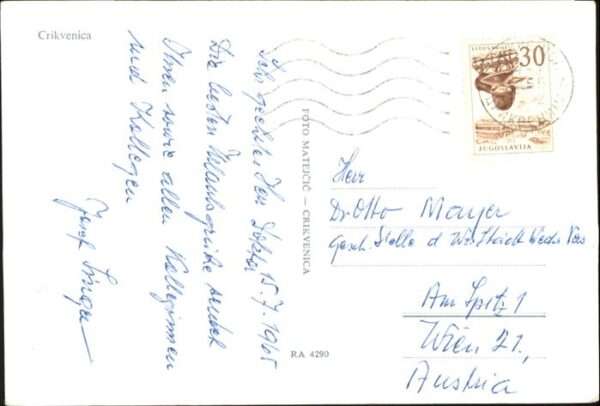 Crikvenica
Sehr geehrter Herr Doktor 15.7.1965
Die besten Urlaubsgrüße sendet
Ihnen sowie allen Kolleginnen
und Kollegen
Josef
FOTO MATEJČIĆ — CRIKVENICA
R.A. 4290
30
JUGOSLAVIJA
Herr
Dr Otto Mayer
Gesch. Stelle d
Am Spitz 1
Wien 21,
Austria